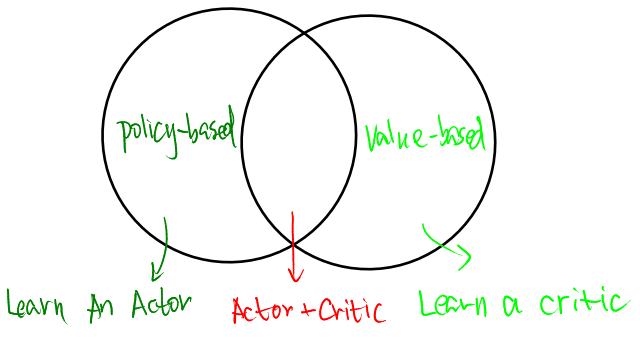 policy-based
Value-based
Learn An Actor
Actor + Critic
Learn a critic